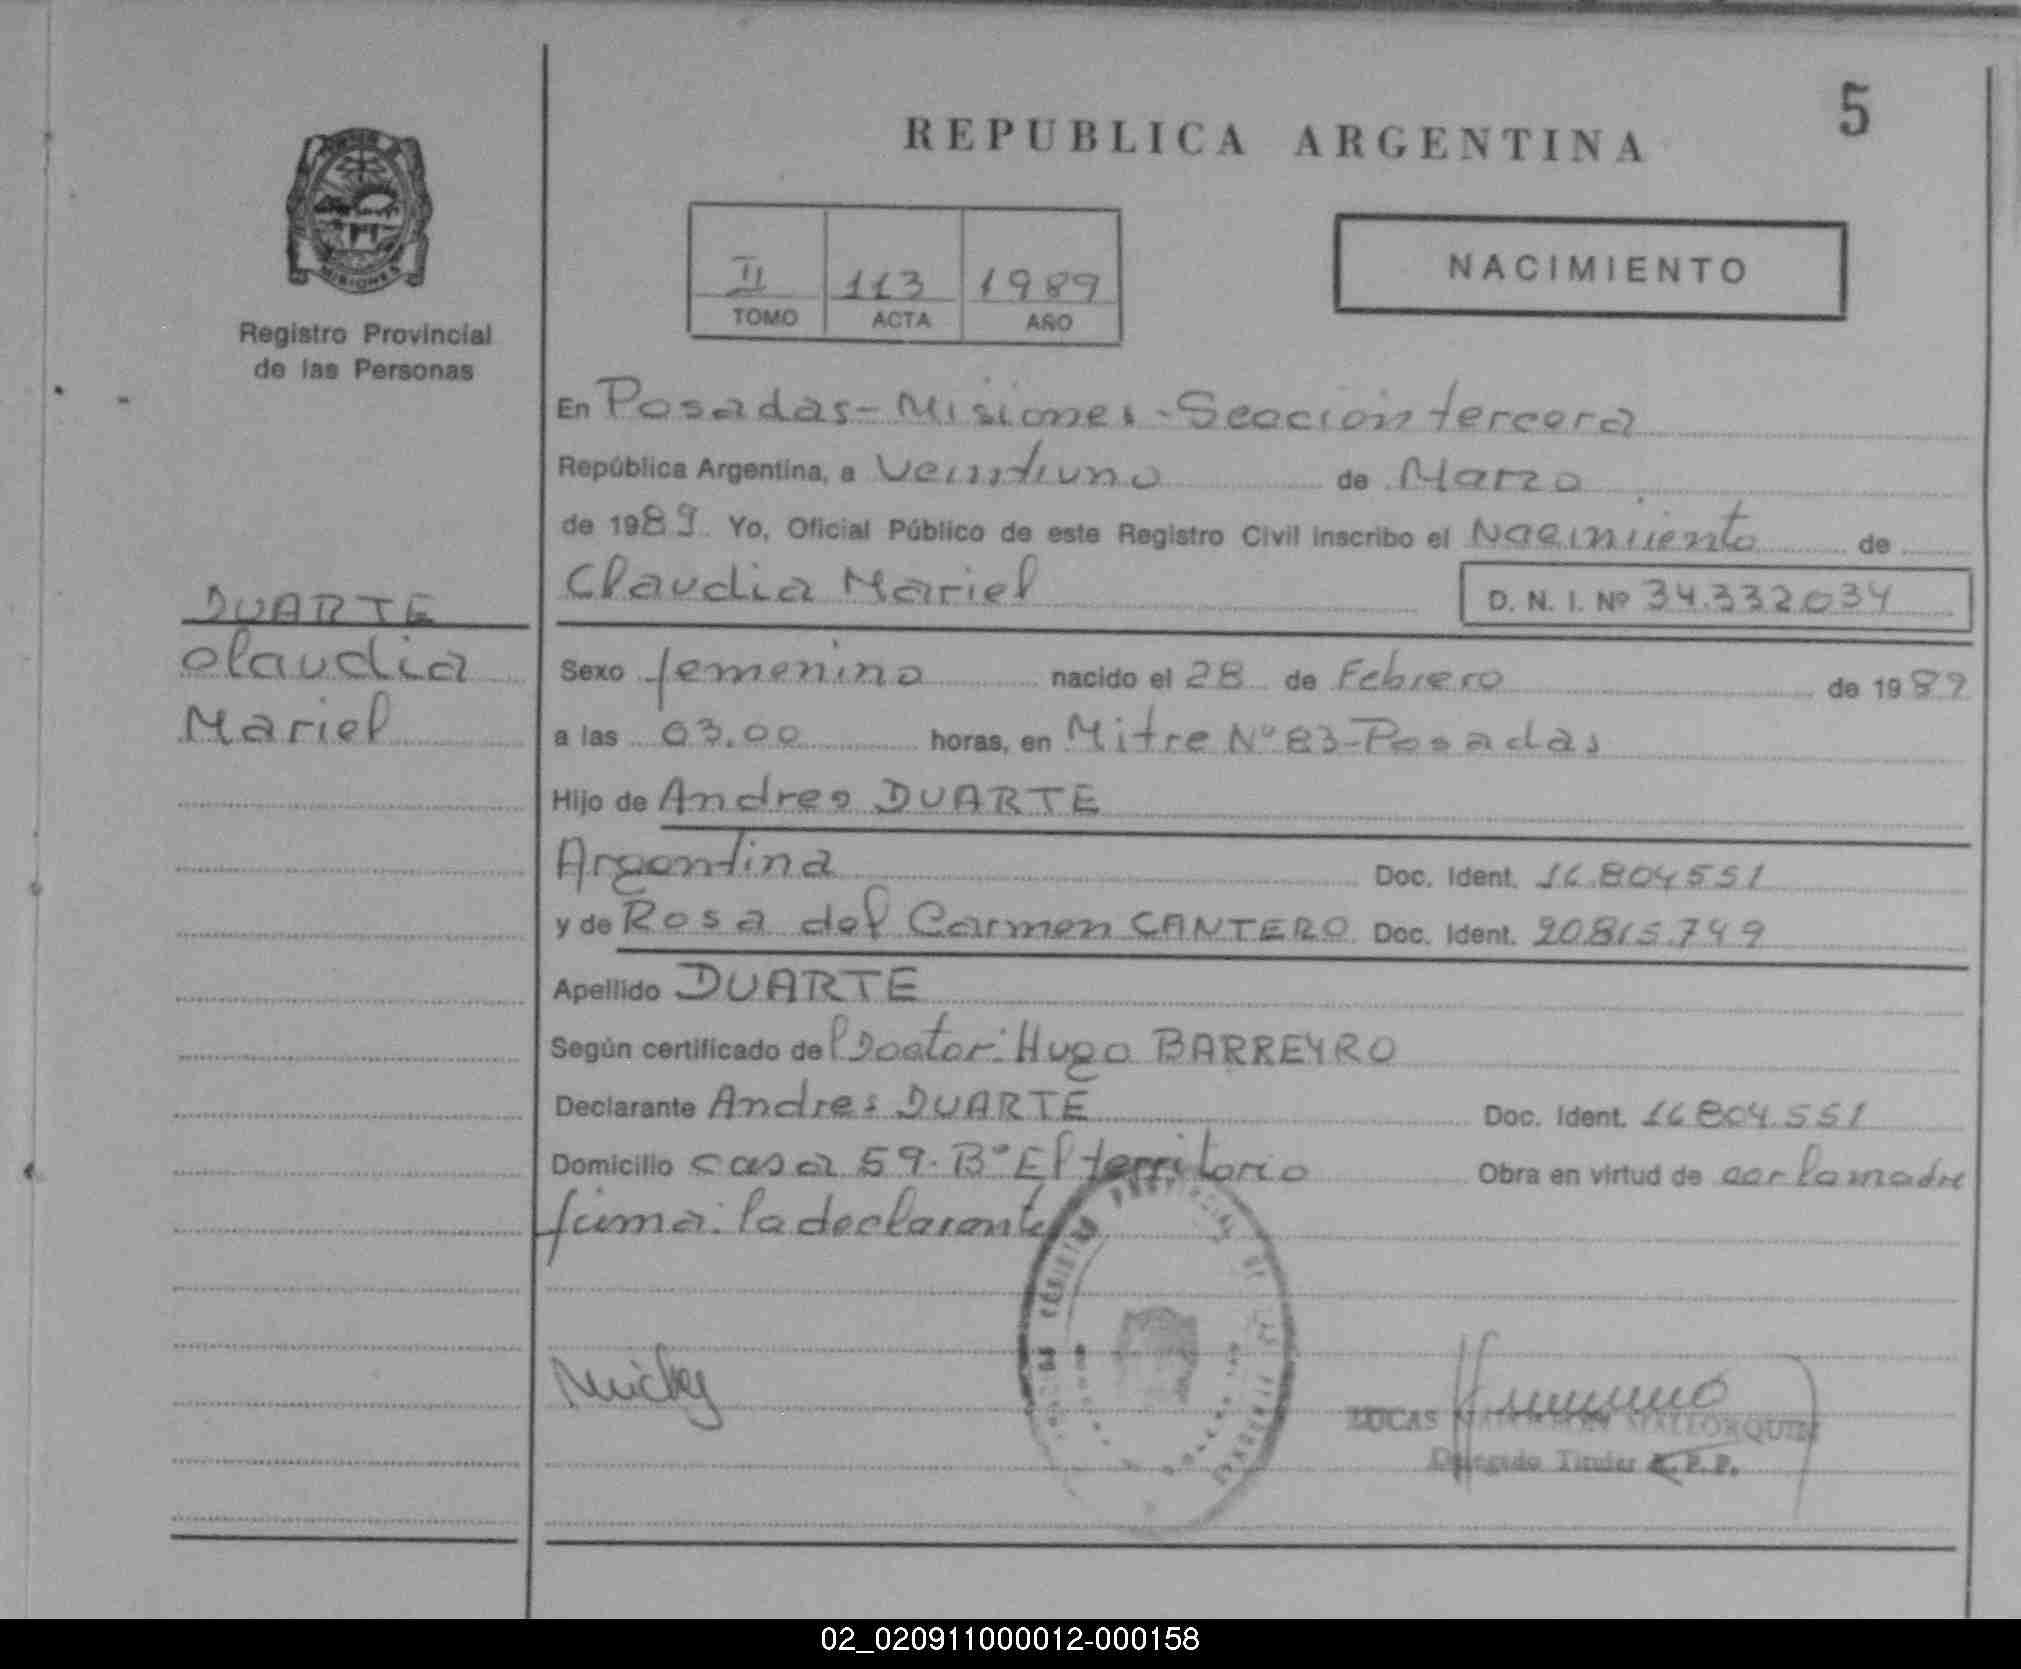 5
REPUBLICA ARGENTINA
MISIONES
Registro Provincial
de las Personas
II 113 1989
TOMO ACTA AÑO
NACIMIENTO
En Posadas - Misiones - Seccion tercera
República Argentina, a veintiuno de Marzo
de 1989. Yo, Oficial Público de este Registro Civil inscribo el Nacimiento de
Claudia Mariel D. N. I. Nº 34.332034
DUARTE
Claudia
Mariel
Sexo femenino nacido el 28 de Febrero de 1989
a las 03.00 horas, en Mitre Nº 83-Posadas
Hijo de Andres DUARTE
Argentina Doc. Ident. 16.804551
y de Rosa del Carmen CANTERO Doc. Ident. 20.815.749
Apellido DUARTE
Según certificado del Doctor: Hugo BARREYRO
Declarante Andres DUARTE Doc. Ident. 16 804.551
Domicilio casa 59. Bº El territorio Obra en virtud de ser la madre
firma: la declarante
PROVINCIAL DE LAS PERSONAS
LUCAS MALLORQUIN
Delegado Titular R. P. P.
02_020911000012-000158